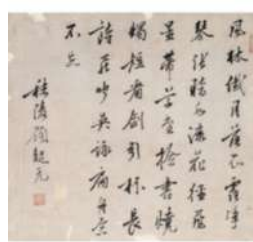 風林纖月落衣露淨
琴張暗水流花徑春
星帶草堂檢書燒
燭短看劍引杯長
詩罷聞吳詠扁舟意
不忘
秣陵顧起元